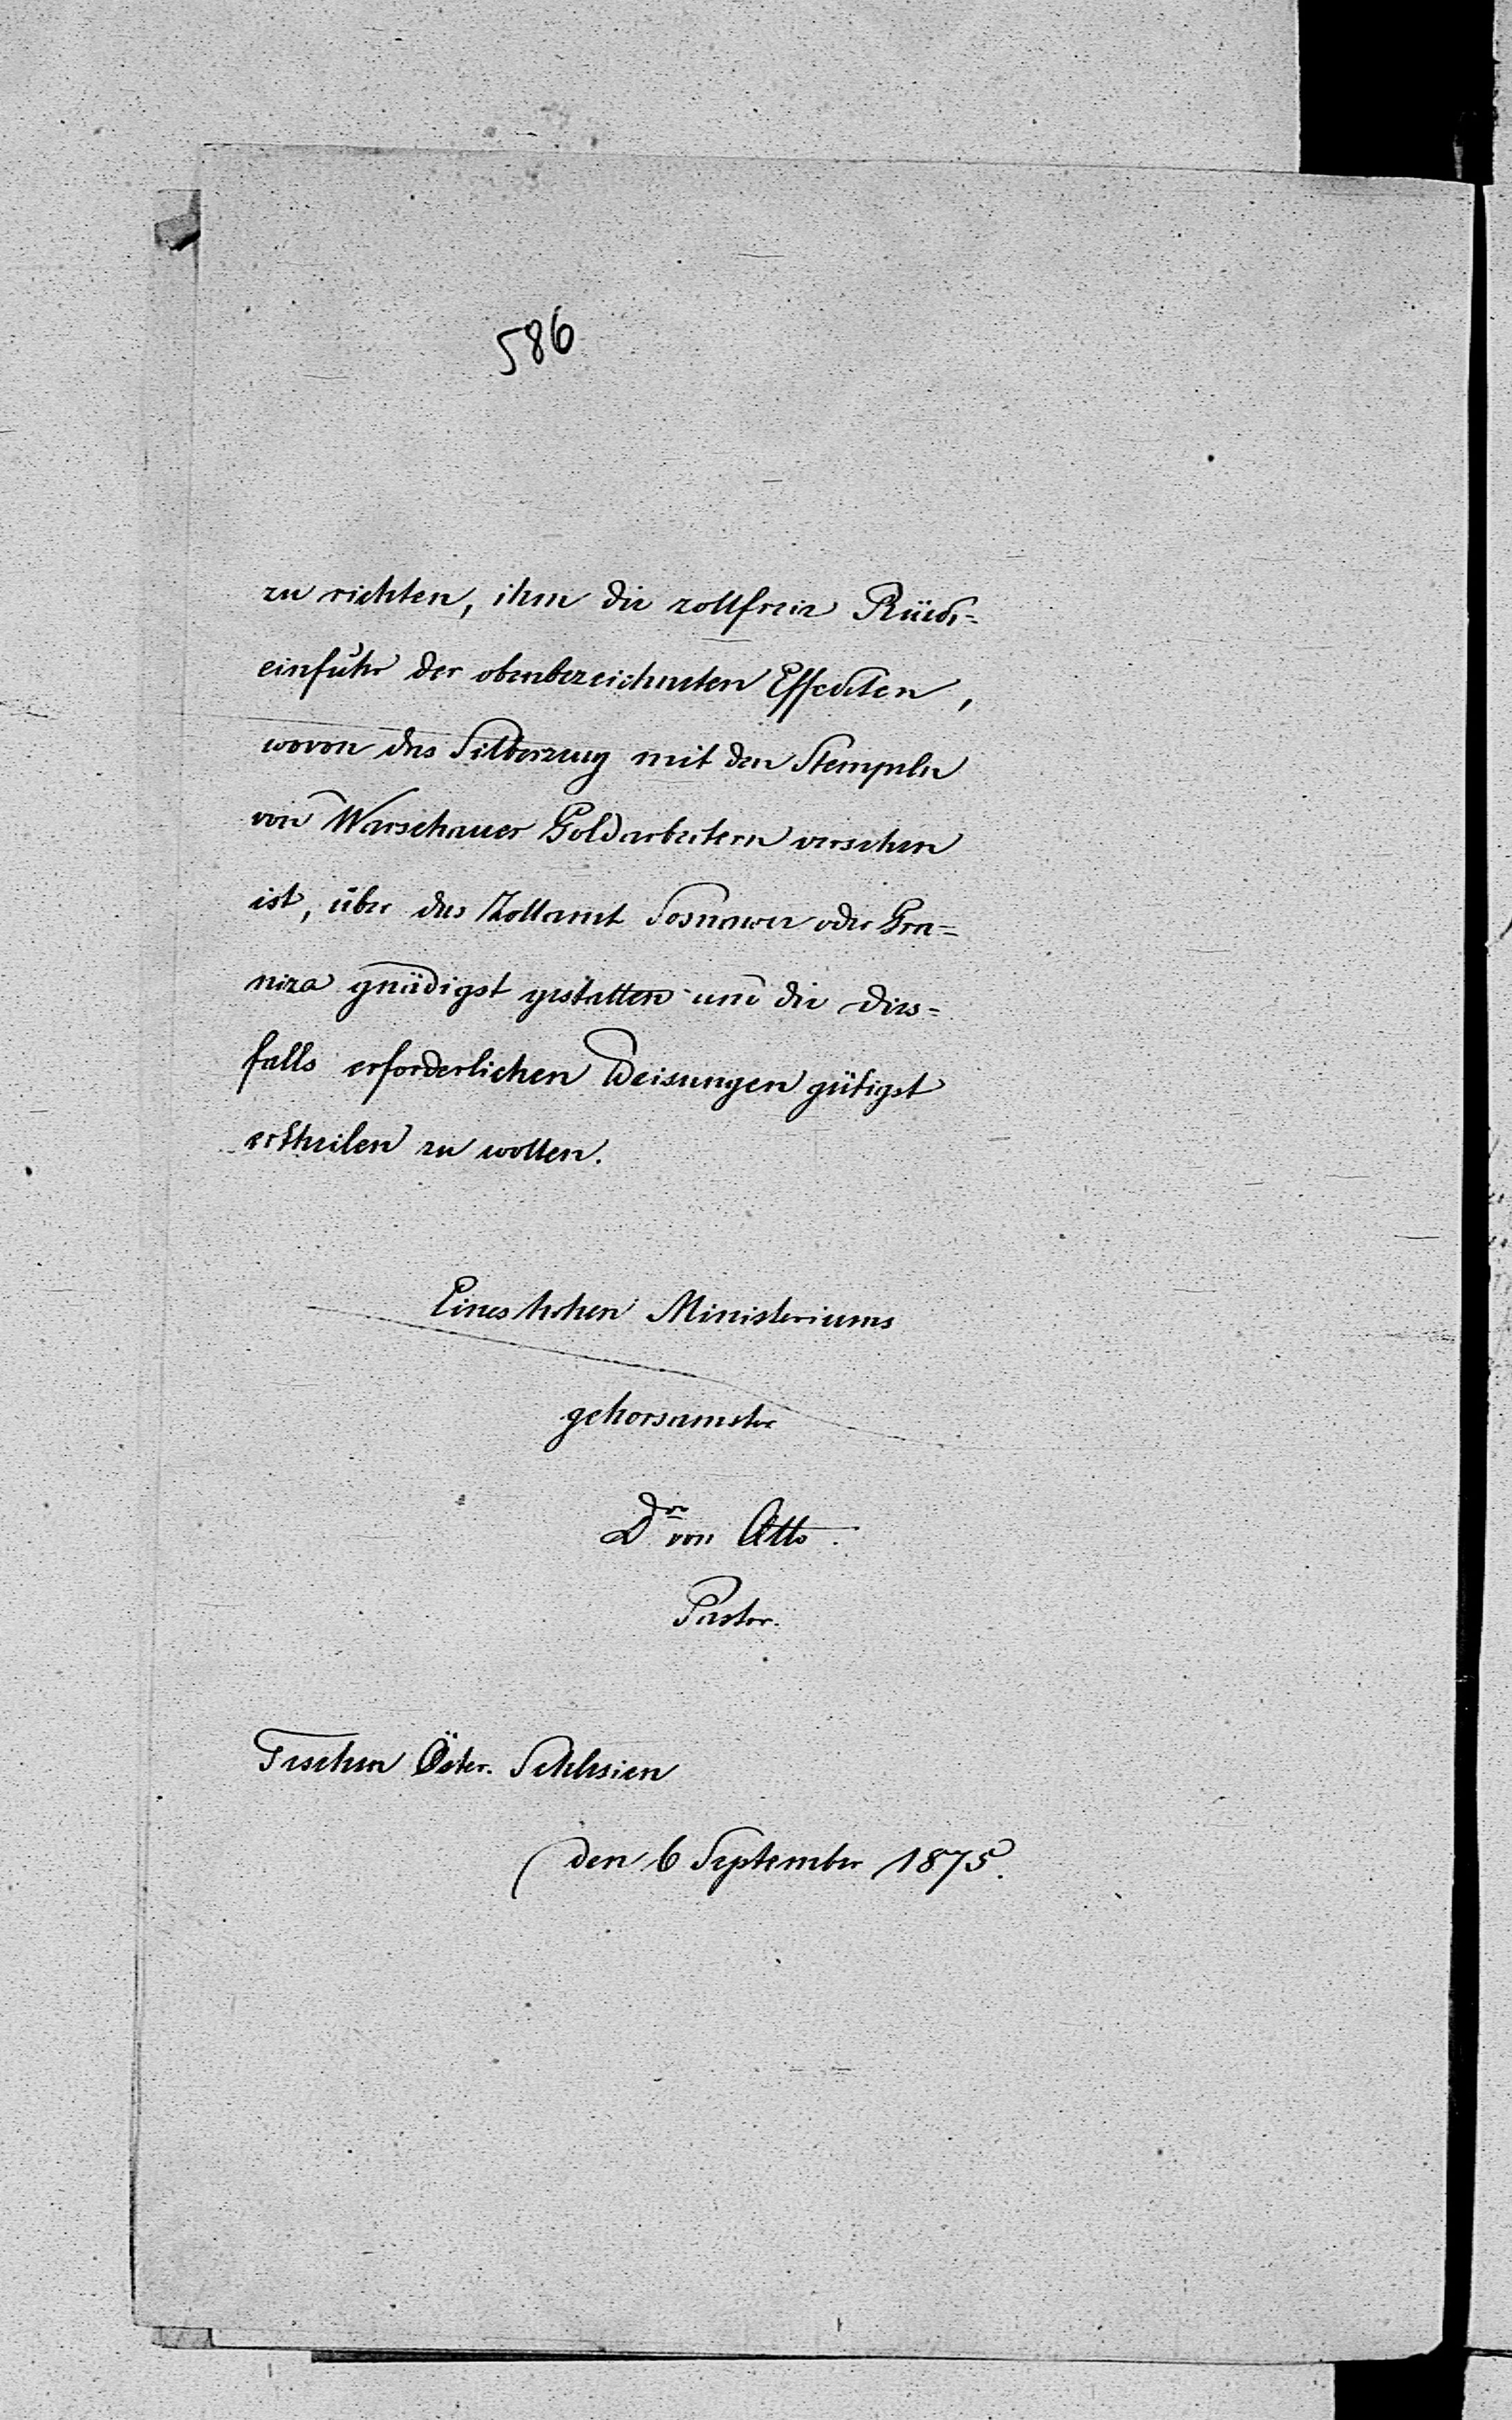 586
zu richten, ihm die zollfreie Rück-
einfuhr der obenbezeichneten Effecten,
wovon das Silberzeug mit den Stempeln
von Warschauer Goldarbeitern versehen
ist, über das Zollamt Sosnowce oder Gra-
niza gnädigst gestatten und die dies-
falls erforderlichen Weisungen gütigst
ertheilen zu wollen.
Eines hohen Ministeriums
gehorsamster
Dr von Otto.
Pastor.
Teschen Öster. Schlesien
den 6 September 1875.